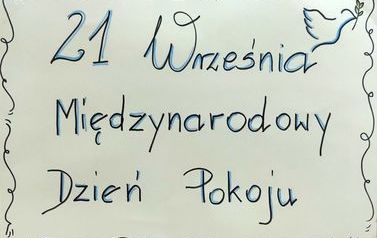 21 Września
Międzynarodowy
Dzień Pokoju